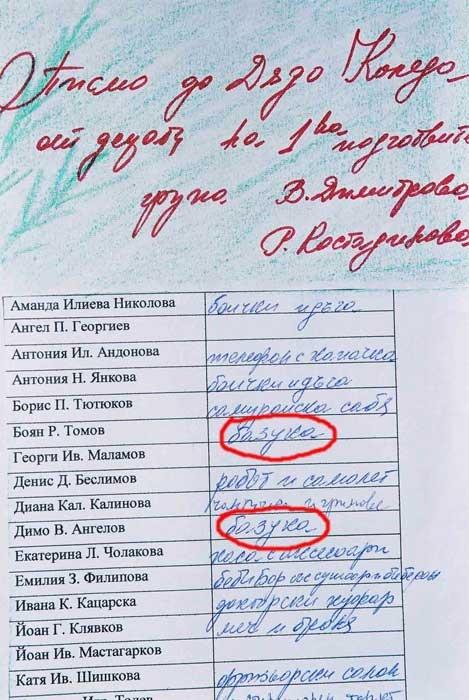 Писмо до Дядо Коледа
от децата на 1ва подготвит.
група В. Димитрова
Р. Костадинова
Аманда Илиева Николова всички и дъга
Ангел П. Георгиев
Антония Ил. Андонова телефон с
Антония Н. Янкова и дъга
Борис П. Тютюков самурайска сабя
Боян Р. Томов базука
Георги Ив. Маламов
Денис Д. Беслимов робот и самолет
Диана Кал. Калинова и гримове
Димо В. Ангелов базука
Екатерина Л. Чолакова
Емилия З. Филипова
Ивана К. Кацарска докторски куфар
Йоан Г. Клявков меч и броня
Йоан Ив. Мастагарков
Катя Ив. Шишкова фризьорски салон